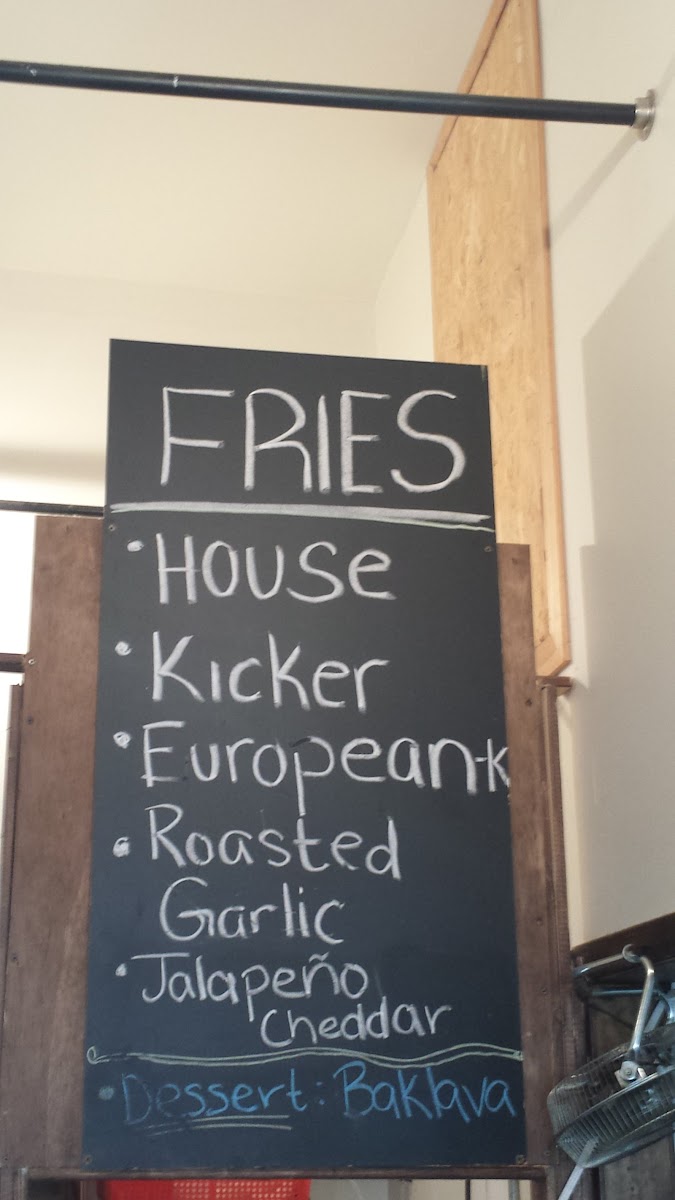 FRIES
• House
• Kicker
• European-K
• Roasted
Garlic
• Jalapeño
Cheddar
• Dessert: Baklava